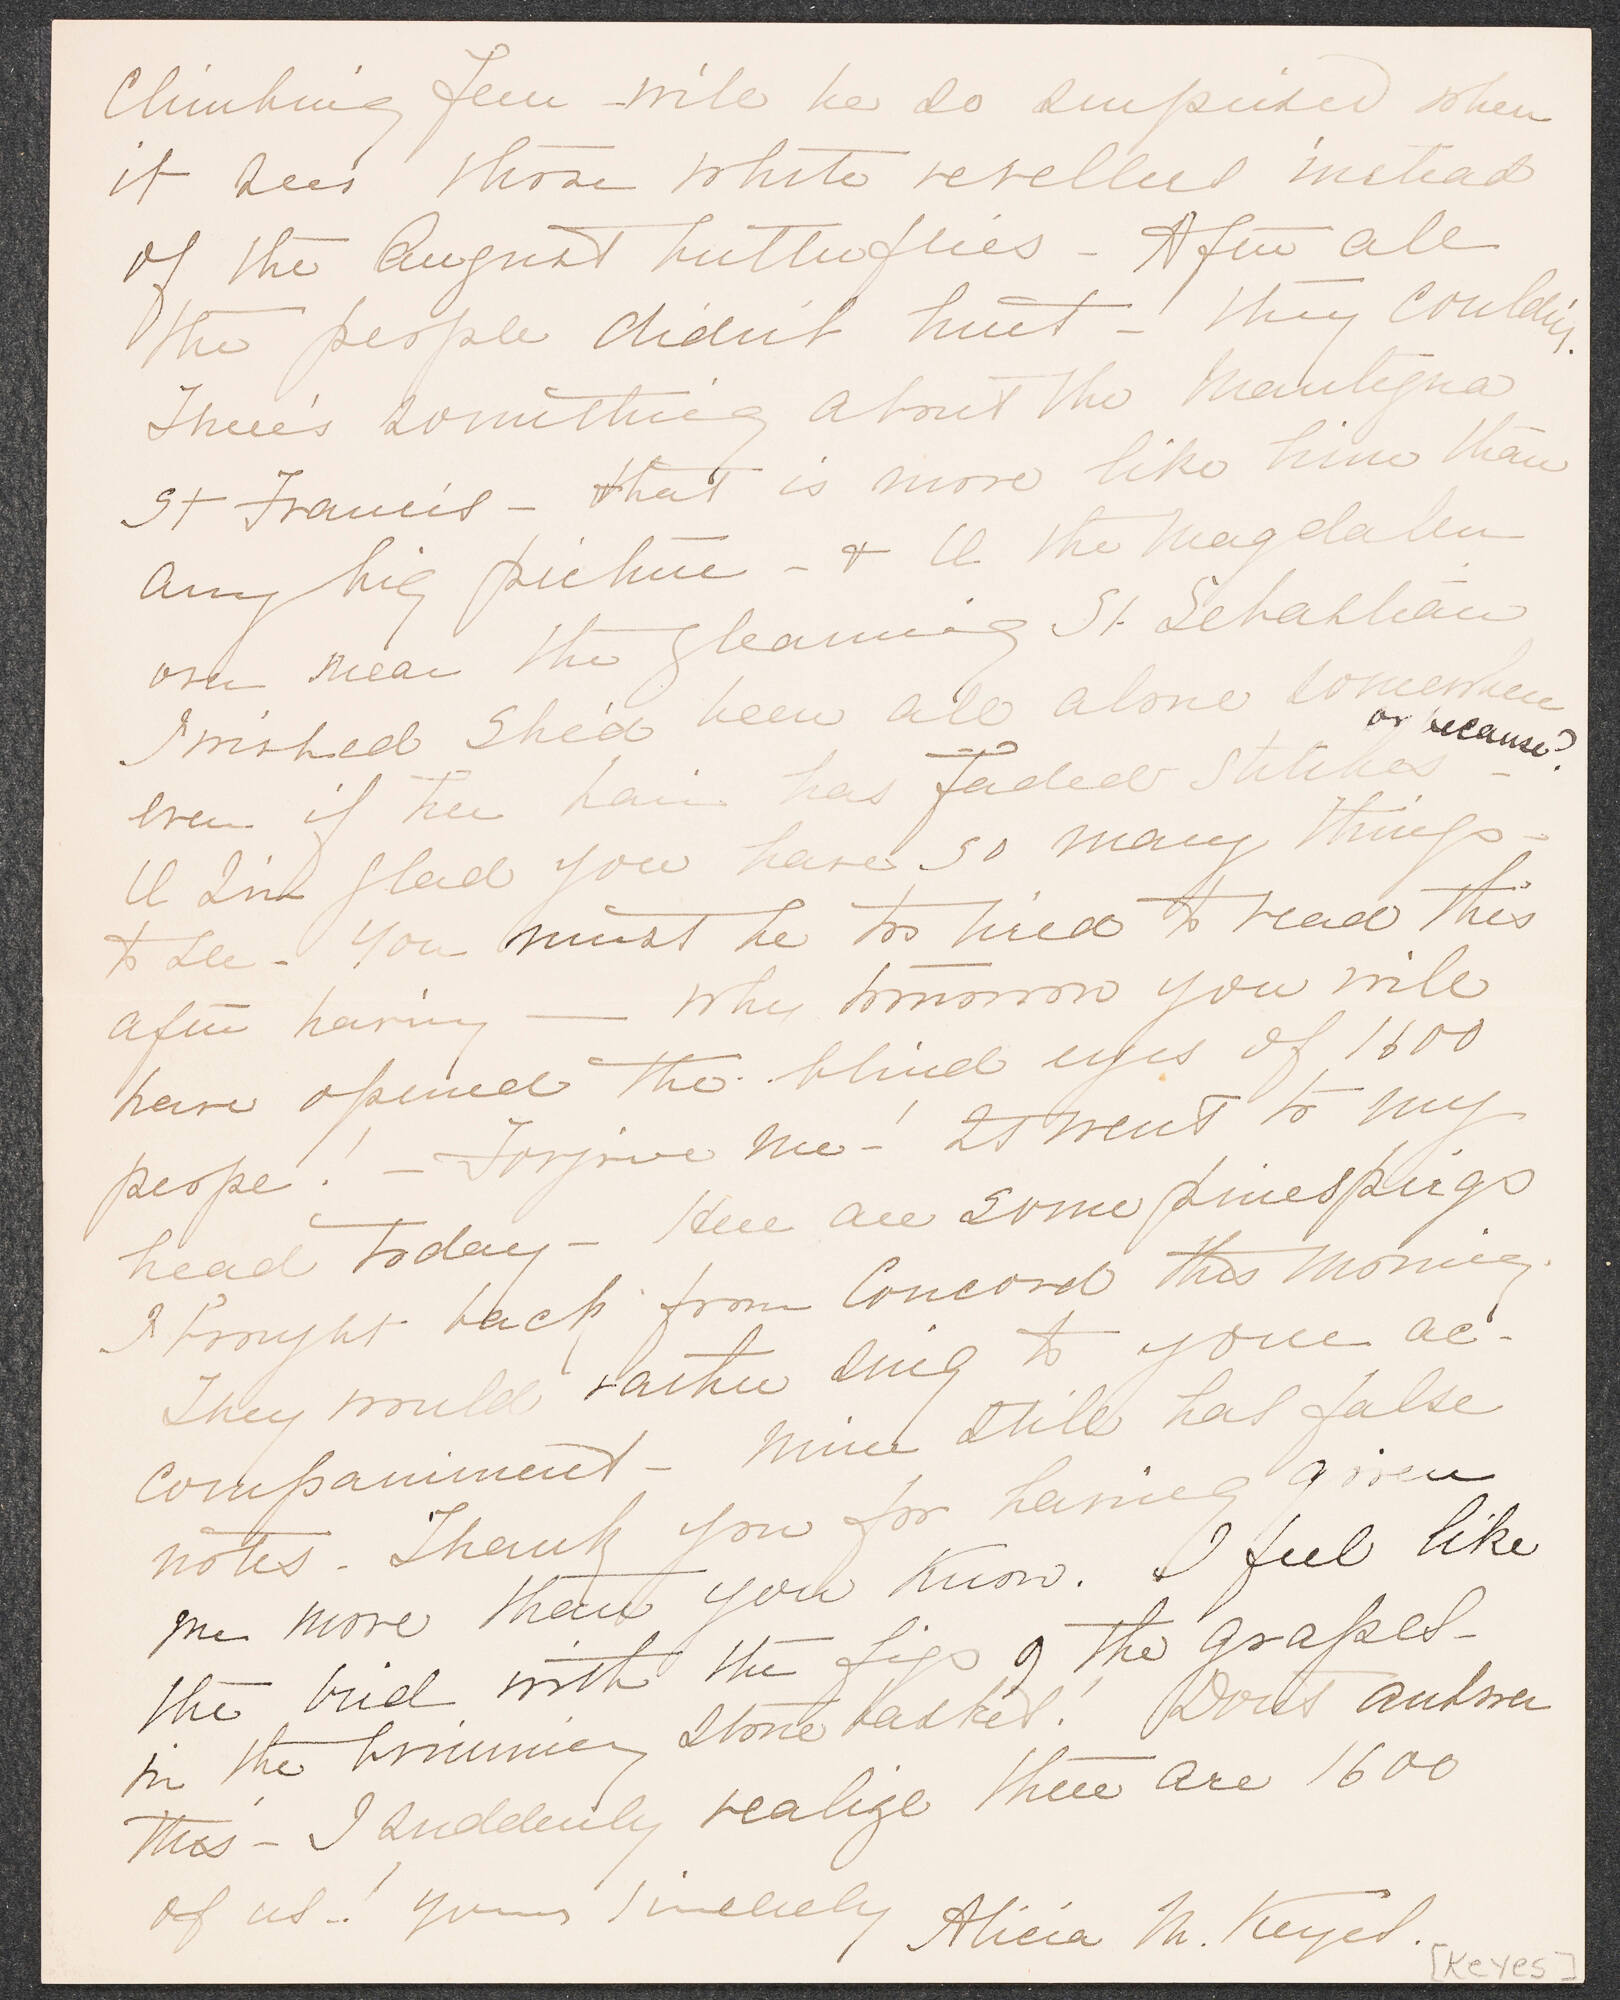 Climbing fern will be so surprised when
it sees those white revellers instead
of the August butterflies - After all
the people didn't hurt - they couldn't.
There's something about the Mantegna
St Francis - that is more like him than
any big picture - & O the Magdalen
over near the gleaming St Sebastian
I wished she'd been all alone somewhere
or because?
even if her hair has faded stitches -
O I'm glad you have so many things -
to see - You must be too tired to read this
after having — why tomorrow you will
have opened the blind eyes of 1600
peope! - Forgive me -! It went to my
head today - Here are some pinesprigs
I brought back from Concord this morning.
They would rather sing to your ac-
companiment - Mine still has false
notes - Thank you for having given
me more than you know. I feel like
the bird with the figs & the grapes -
in the brimming stone basket! Don't answer
this - I suddenly realize there are 1600
of us -! Yours sincerely
Alicia M. Keyes.
[Keyes]